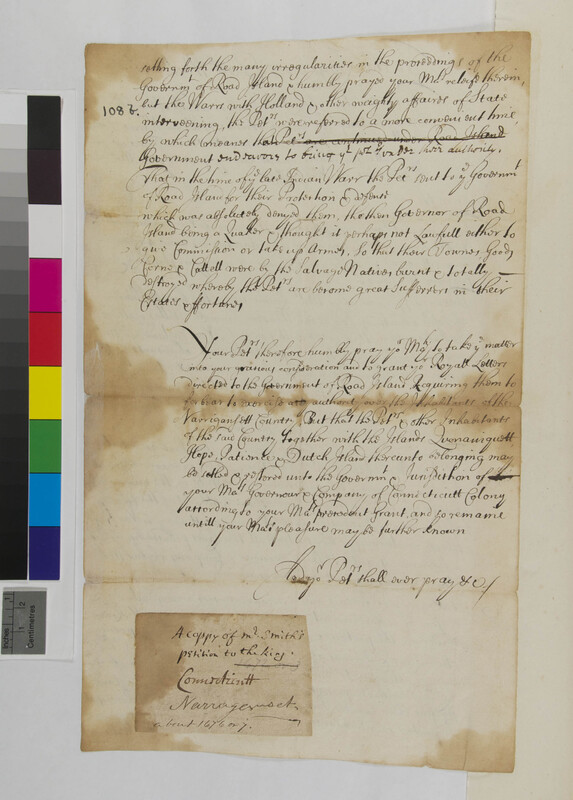 setting forth the many irregularities in the proceedings of the
Governmt of Road Island & humbly prayed your Maties releife therein,
but the Warrs with Holland & other weighty affaires of State
108 b.
interveening, the Petrs were referred to a more convenient time
by which meanes the Petrs are continued under Road Island
Government endeavors to bring ye petrs under their authority.
That in the time of ye late Indian Warr the Petrs sent to ye Governmt
of Road Island for their Protection & defense
which was absolutely denyed them, the then Governor of Road
Island being a Quaker & thought it perhaps not Lawfull either to
give Commission or take up Armes, So that their Townes Goods
Corne & Cattell were by the Salvage Natives burnt & totally
Destroyed whereby the Petrs are become great Sufferers in their
Estates & fortunes,
Your Petrs therefore humbly pray yor Maty to take ye matter
into your gratious consideration and to grant yor Royall Letters
directed to the Government of Road Island Requiring them to
forbear to exercise any authority over the Inhabitants of the
Narrigansett Country But that the Petrs & other Inhabitants
of the said Country together with the Islands Quonanniquett
Hope, Patience & Dutch Island thereunto belonging may
be setled & restored unto the Governmt & Jurisdiction of
your Maties Governour & Company of Connecticutt Colony
according to your Maties precedent Grant, and so remaine
untill your Maties pleasure may be further known
And yor Petrs shall ever pray &c
A coppy of mr Smith's
petition to the king.
Connecticutt
Narragansett
about 1676 or 7.